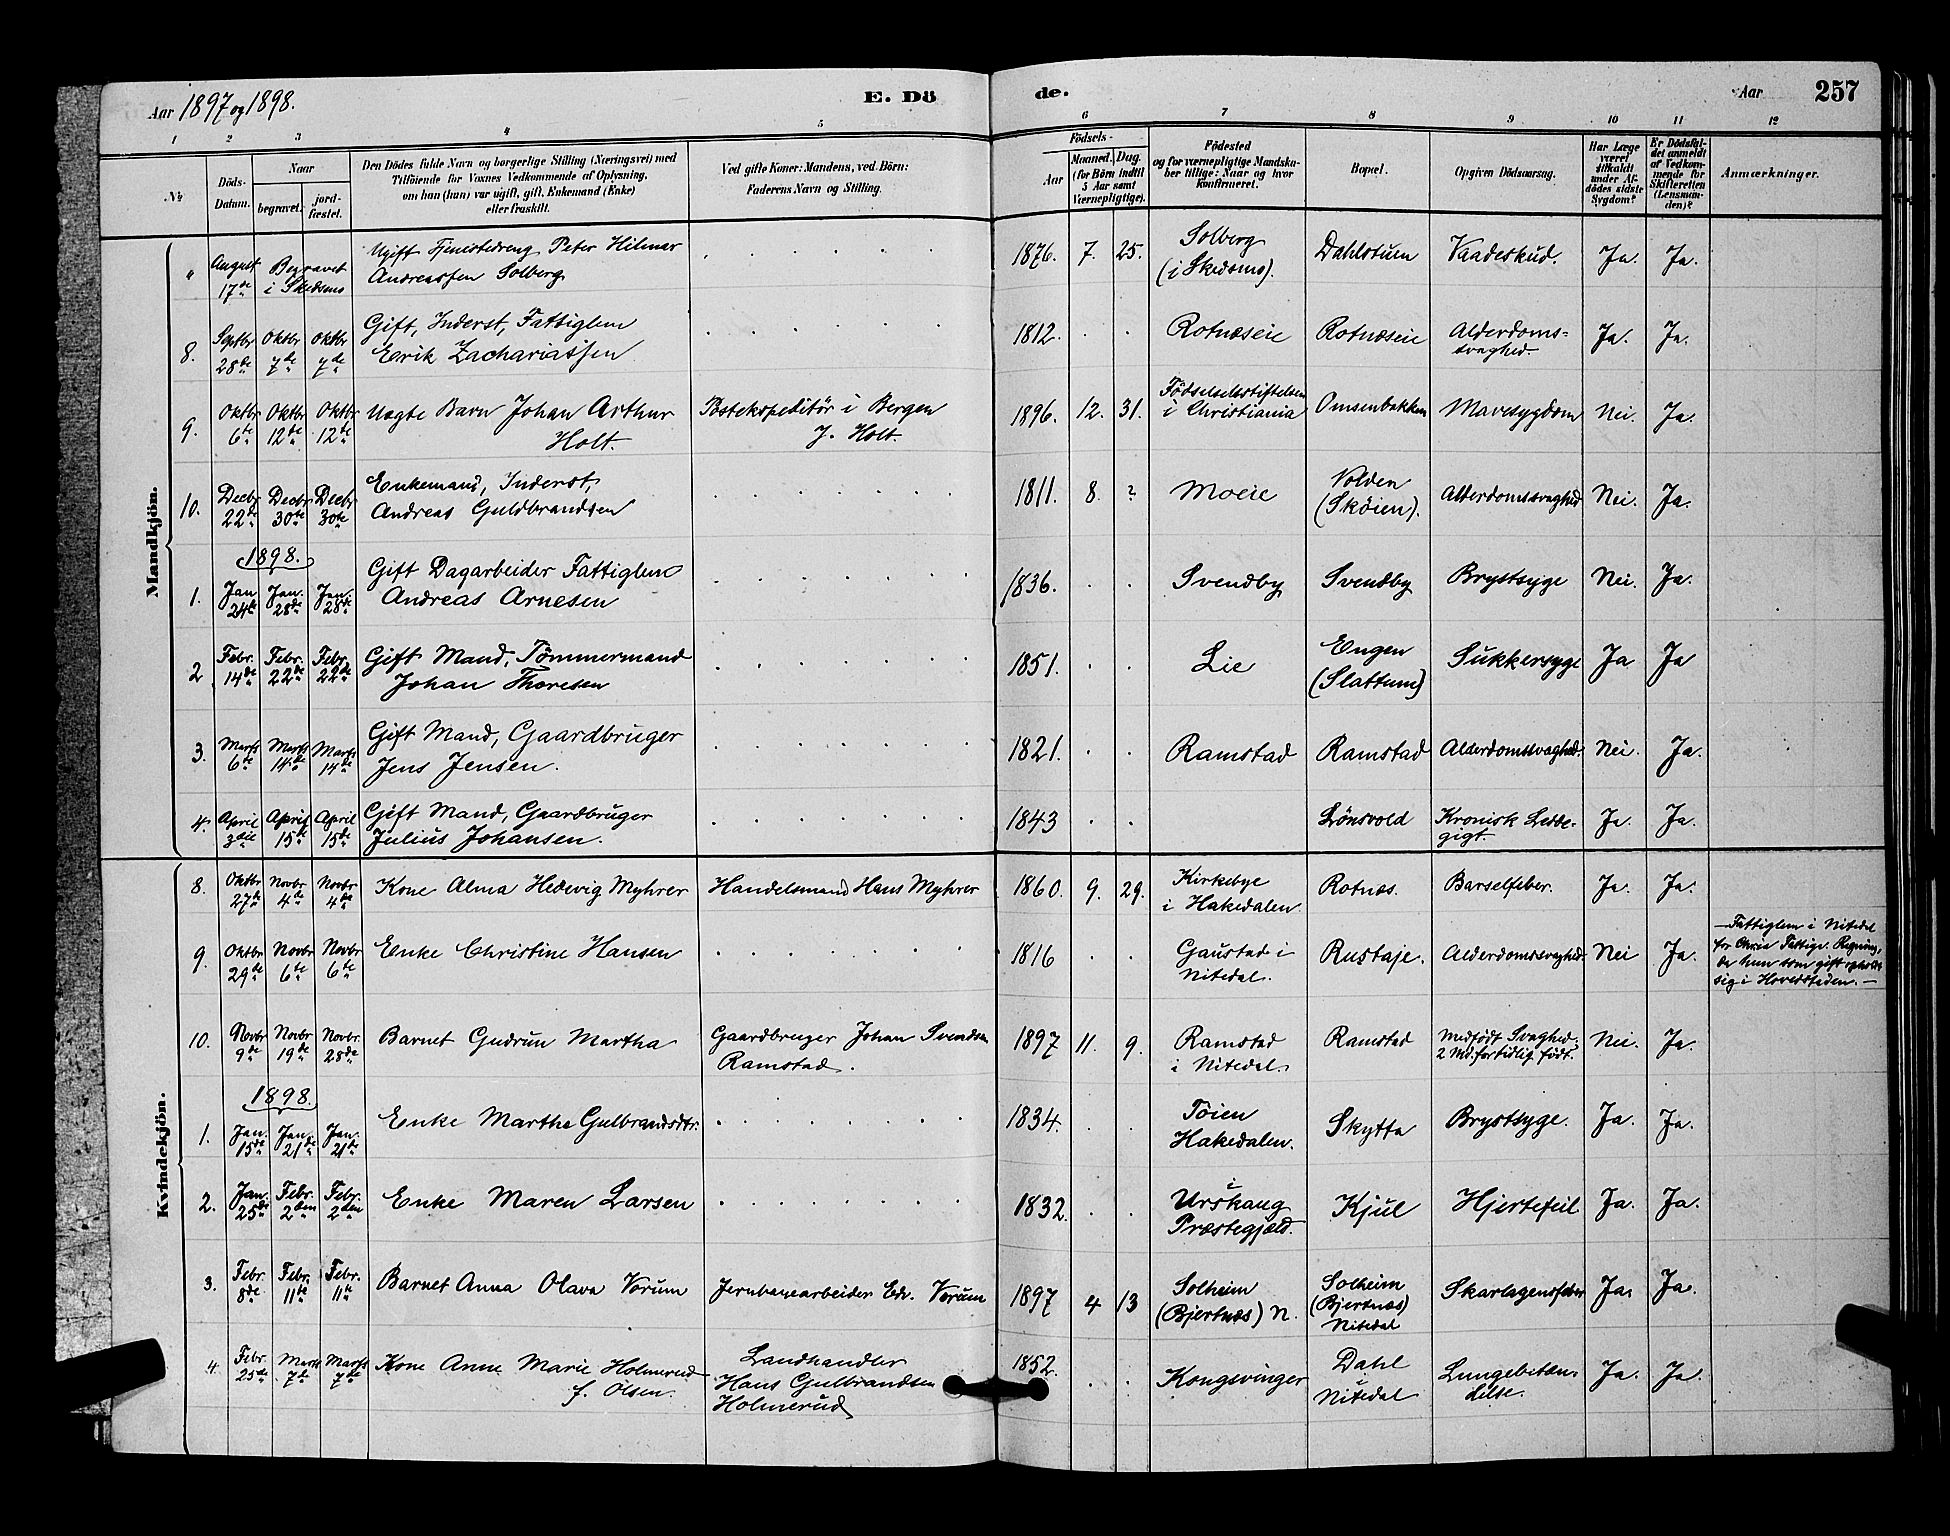 Aar 1897 og 1898.
E. Dö
de.
Aar
257
1 2 3 4 5
6 7 8 9 10 11 12
№
Döds-
Datum.
Naar
begravet.
jord-
fæstet.
Den Dödes fulde Navn og borgerlige Stilling (Næringsvei) med
Tilföiende for Voxnes Vedkommende af Oplysning,
om han (hun) var ugift, gift, Enkemand (Enke)
eller fraskilt.
Ved gifte Koner: Mandens, ved Börn:
Faderens Navn og Stilling.
Födsels-
Aar
Maaned.
Dag.
(for Börn indtil
5 Aar samt
Værnepligtige).
Födested
og for værnepligtige Mandska-
ber tillige: Naar og hvor
konfirmeret.
Bopæl.
Opgiven Dödsaarsag.
Har Læge
været
tilkaldt
under Af-
dödes sidste
Sygdom?
Er Dödsfal-
det anmeldt
af Vedkom-
mende for
Skifteretten
(Lensman-
den)?
Anmærkninger.
Mandkjön.
" August 17de Begravet i Skedsmo Ugift Tjenestedreng Peter Hilmar
Andreassen Solberg 1876. 7. 25. Solberg (i Skedsmo). Dahlstuen Vaadeskud. Ja. Ja.
8. Septbr 28de Oktbr 7de Oktbr 7de Gift, Inderst, Fattiglem
Eerik Zachariassen 1812. Rotnæseie Rotnæseie Alderdoms-
svaghed. Ja. Ja.
9. Oktbr 6te Oktbr 12te Oktbr 12te Uægte Barn Johan Arthur
Holt. Postekspeditör i Bergen
J. Holt. 1896. 12. 31. Födselsstiftelsen
i Christiania Omsenbakken Mavesygdom Nei. Ja.
10. Decbr 22de Decbr 30te Decbr 30te Enkemand, Inderst,
Andreas Guldbrandsen 1811. 8. ? Moeie Volden
(Skøien). Alderdomssvaghed Nei. Ja.
1898.
1. Jan 24de Jan. 28de Jan. 28de Gift Dagarbeider Fattiglem
Andreas Arnesen 1836. Svendby Svendby Brystsyge Nei. Ja.
2 Febr. 14de Febr. 22de Febr. 22de Gift Mand, Tömmermand
Johan Thoresen 1851. Lie Engen
(Slattum) Sukkersyge Ja Ja
3. Marts 6te Marts 14de Marts 14de Gift Mand, Gaardbruger
Jens Jensen. 1821. Ramstad Ramstad Alderdomssvaghed. Nei. Ja.
4. April 3die April 15de April 15de Gift Mand, Gaardbruger
Julius Johansen. 1843 Lönsvold Kronisk Ledde-
gigt. Ja. Ja.
Kvindekjön.
8. Oktbr 27de Novbr 4de Novbr 4de Kone Alma Hedevig Myhrer Handelsmand Hans Myhrer 1860. 9. 29. Kirkebye
i Hakedalen. Rotnæs. Barselfeber. Ja. Ja.
9. Oktbr 29de Novbr 6te Novbr 6te Enke Christine Hansen 1816 Gaustad i
Nitedal. Rustaje. Alderdomssvaghed. Nei Ja.
—Fattiglem i Nitedal
for Chria Fattigv. Regning,
da hun som gift opholdt
sig i Hovedstaden.—
10. Novbr 9de Novbr 19de Novbr. 28de Barnet Gudrun Martha Gaardbruger Johan Svendsen
Ramstad. 1897 11. 9. Ramstad
i Nitedal. Ramstad Medfödt Svaghed.
2 Md. for tidlig födt. Nei. Ja.
1898.
1. Jan. 15de Jan. 21de Jan. 21de Enke Marthe Gulbrandsdtr. 1834. Töien
Hakedalen. Skytta Brystsyge. Ja. Ja.
2. Jan. 25de Febr. 2den Febr. 2den Enke Maren Larsen 1832. i
Urskaug
Præstegjæld. Kjul Hjertefeil Ja. Ja.
3. Febr. 8de Febr. 11te Febr. 11te Barnet Anna Olava Vorum Jernbanearbeider Edv. Vorum 1897 4 13 Solheim
(Bjertnæs) N. Solheim
(Bjertnæs)
Nitedal Skarlagensfeber Ja. Ja.
4. Febr. 25de Marts 7de Marts 7de Kone Anne Marie Holmerud
f. Olsen. Landhandler
Hans Gulbrandsen
Holmerud 1852. Kongsvinger Dahl
i
Nitedal Lungebetæn-
delse. Ja. Ja.